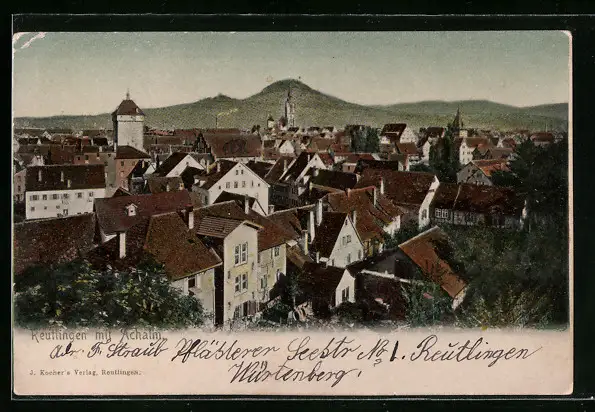 Reutlingen mit Achalm
Adr. F. Straub Pflästerer Seestr No 1. Reutlingen
Würtenberg.
J. Kocher's Verlag, Reutlingen.